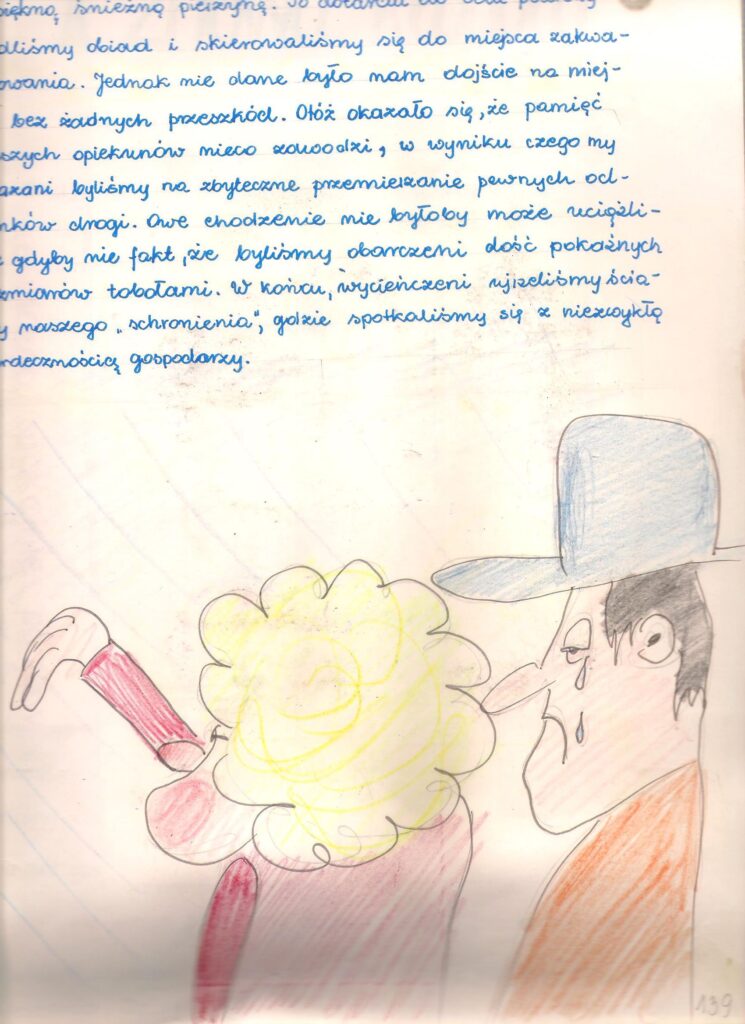 piękną śnieżną pierzyną. Po dotarciu do celu
dliśmy obiad i skierowaliśmy się do miejsca zakwa-
owania. Jednak nie dane było nam dojście na miej-
bez żadnych przeszkód. Otóż okazało się, że pamięć
szych opiekunów nieco zawodzi, w wyniku czego my
azani byliśmy na zbyteczne przemierzanie pewnych od-
nków drogi. Owe chodzenie nie byłoby może uciążli-
gdyby nie fakt, że byliśmy obarczeni dość pokaźnych
zmiarów tobołami. W końcu, wycieńczeni ujrzeliśmy ścia-
y naszego „schronienia", gdzie spotkaliśmy się z niezwykłą
rdecznością gospodarzy.
139